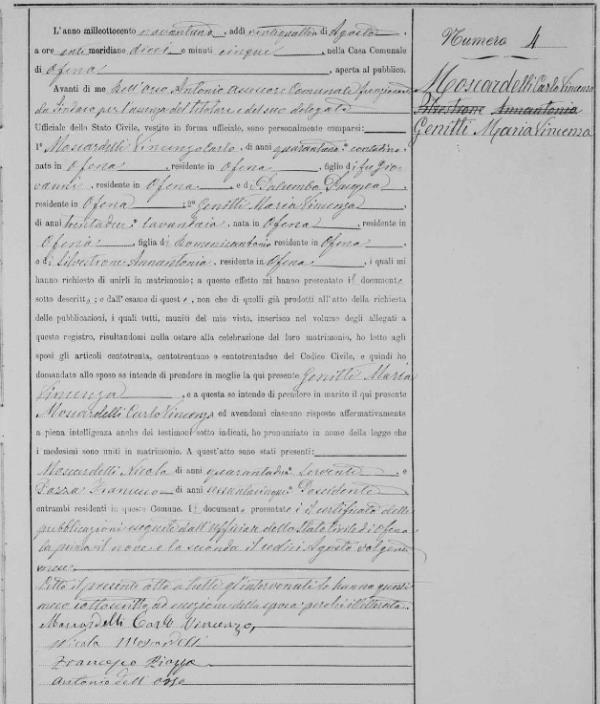 L'anno milleottocento novantuno, addì ventiquattro di Agosto
a ore anti meridiane dieci e minuti cinque, nella Casa Comunale
di Ofena, aperta al pubblico.
Avanti di me Dell'Orso Antonio Assessore Comunale funzionante
da Sindaco per l'assenza del titolare e del suo delegato
Uffiziale dello Stato Civile, vestito in forma ufficiale, sono personalmente comparsi:
1º Moscardelli Vincenzo Carlo, di anni quarantuno contadino
nato in Ofena, residente in Ofena, figlio di fu Gio-
vanni, residente in Ofena, e di Palumbo
residente in Ofena; 2º Genitti Maria Vincenza
di anni trentadue lavandaia, nata in Ofena, residente in
Ofena, figlia di Domenicantonio residente in Ofena
e di Silvestrone Annantonia, residente in Ofena, i quali mi
hanno richiesto di unirli in matrimonio; a questo effetto mi hanno presentato il documento
sotto descritto; e dall'esame di questo, non che di quelli già prodotti all'atto della richiesta
delle pubblicazioni, i quali tutti, muniti del mio visto, inserisco nel volume degli allegati a
questo registro, risultandomi nulla ostare alla celebrazione del loro matrimonio, ho letto agli
sposi gli articoli centotrenta, centotrentuno e centotrentadue del Codice Civile, e quindi ho
domandato allo sposo se intende di prendere in moglie la qui presente Genitti Maria
Vincenza, e a questa se intende di prendere in marito il qui presente
Moscardelli Carlo Vincenzo ed avendomi ciascuno risposto affermativamente
a piena intelligenza anche dei testimoni sotto indicati, ho pronunziato in nome della legge che
i medesimi sono uniti in matrimonio. A quest'atto sono stati presenti:
Moscardelli Nicola di anni quarantadue servente, e
Piazza Francesco di anni sessantacinque Possidente
entrambi residenti in questo Comune. Il documento presentato è il certificato delle
pubblicazioni eseguite dall'uffiziale dello Stato Civile di Ofena
la prima il nove e la seconda il sedici Agosto volgente
mese
Letto il presente atto a tutti gl'intervenuti lo hanno questi
meco sottoscritto, ad eccezione della sposa perché illetterata.
Moscardelli Carlo Vincenzo,
Nicola Moscardelli
Francesco Piazza
Antonio dell'Orso
Numero 4
Moscardelli Carlo Vincenzo
Silvestrone Annantonia
Genitti Maria Vincenza